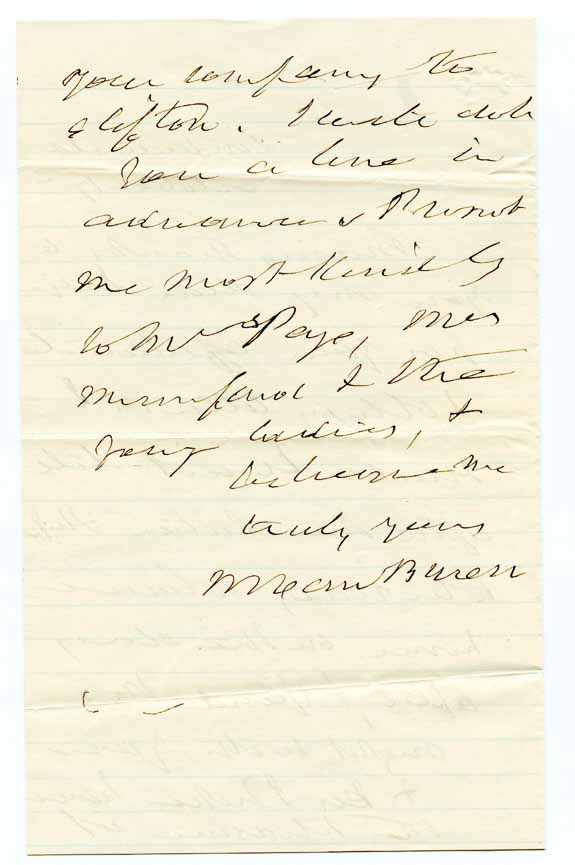 your company to
Clifton. I will drop
you a line in
advance & Present
me most kindly
to Mrs Page, Mrs
Mumford & the
young ladies, &
believe me
truly yours
M Van Buren